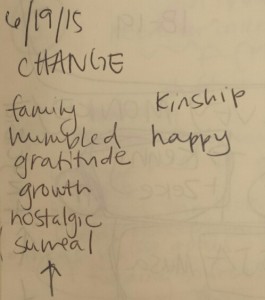 6/19/15
CHANGE
family kinship
humbled happy
gratitude
growth
nostalgic
surreal